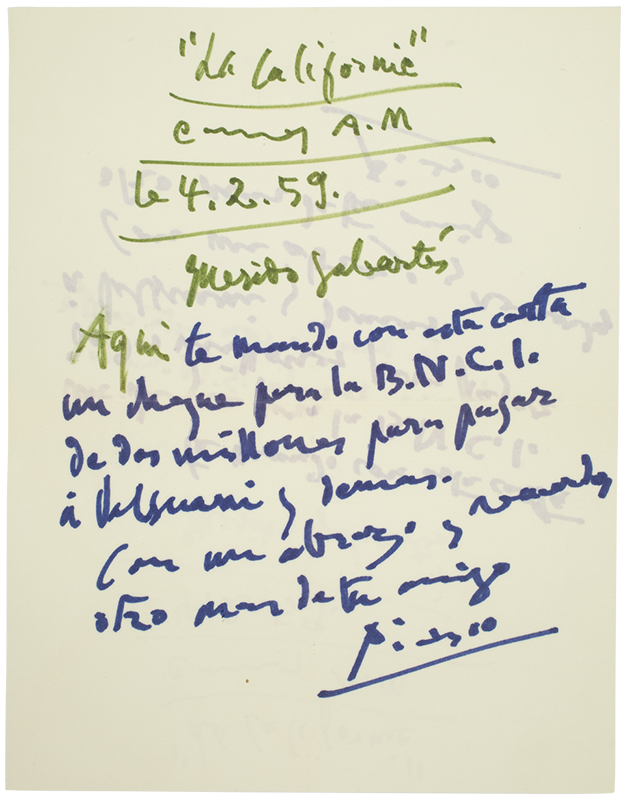 "La Californie"
Cannes A.M
le 4.2.59.
Querido Sabartés
Aqui te mando con esta carta
un cheque para la B.N.C.I.
de dos millones para pagar
à Valsuani y demas.
Con un abrazo y recuerdos
otro mas de tu amigo
Picasso